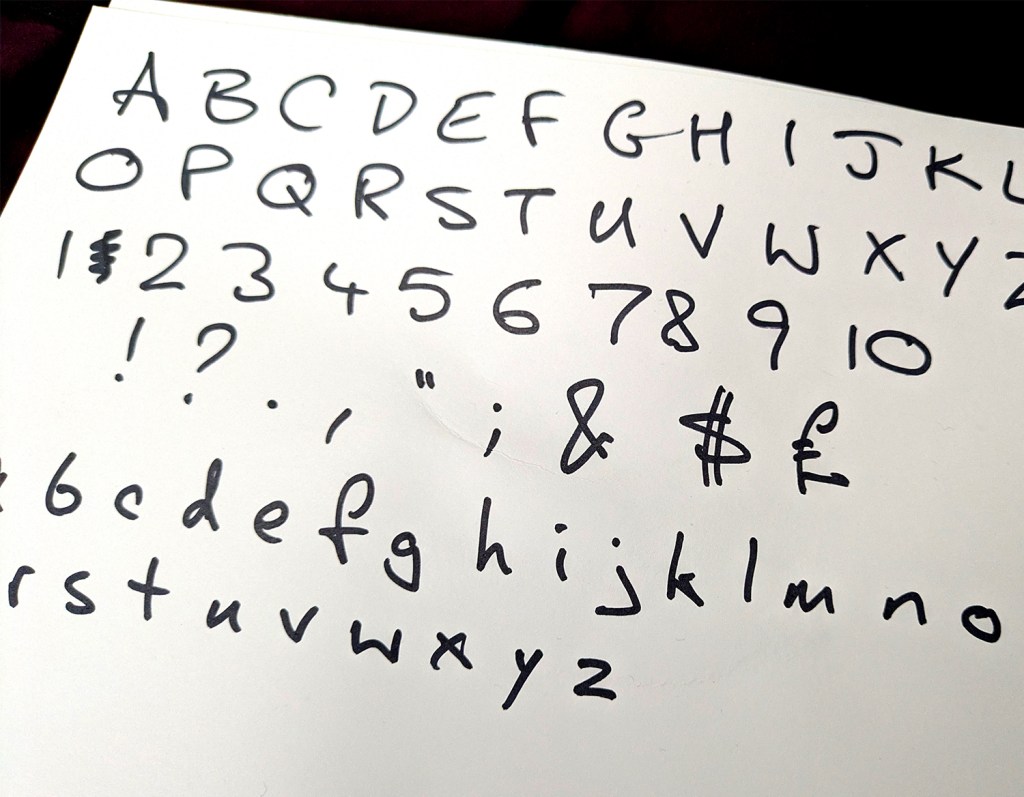 A B C D E F G H I J K L
O P Q R S T U V W X Y Z
1 2 3 4 5 6 7 8 9 10
! ? . , " ; & $ £
b c d e f g h i j k l m n o
r s t u v w x y z